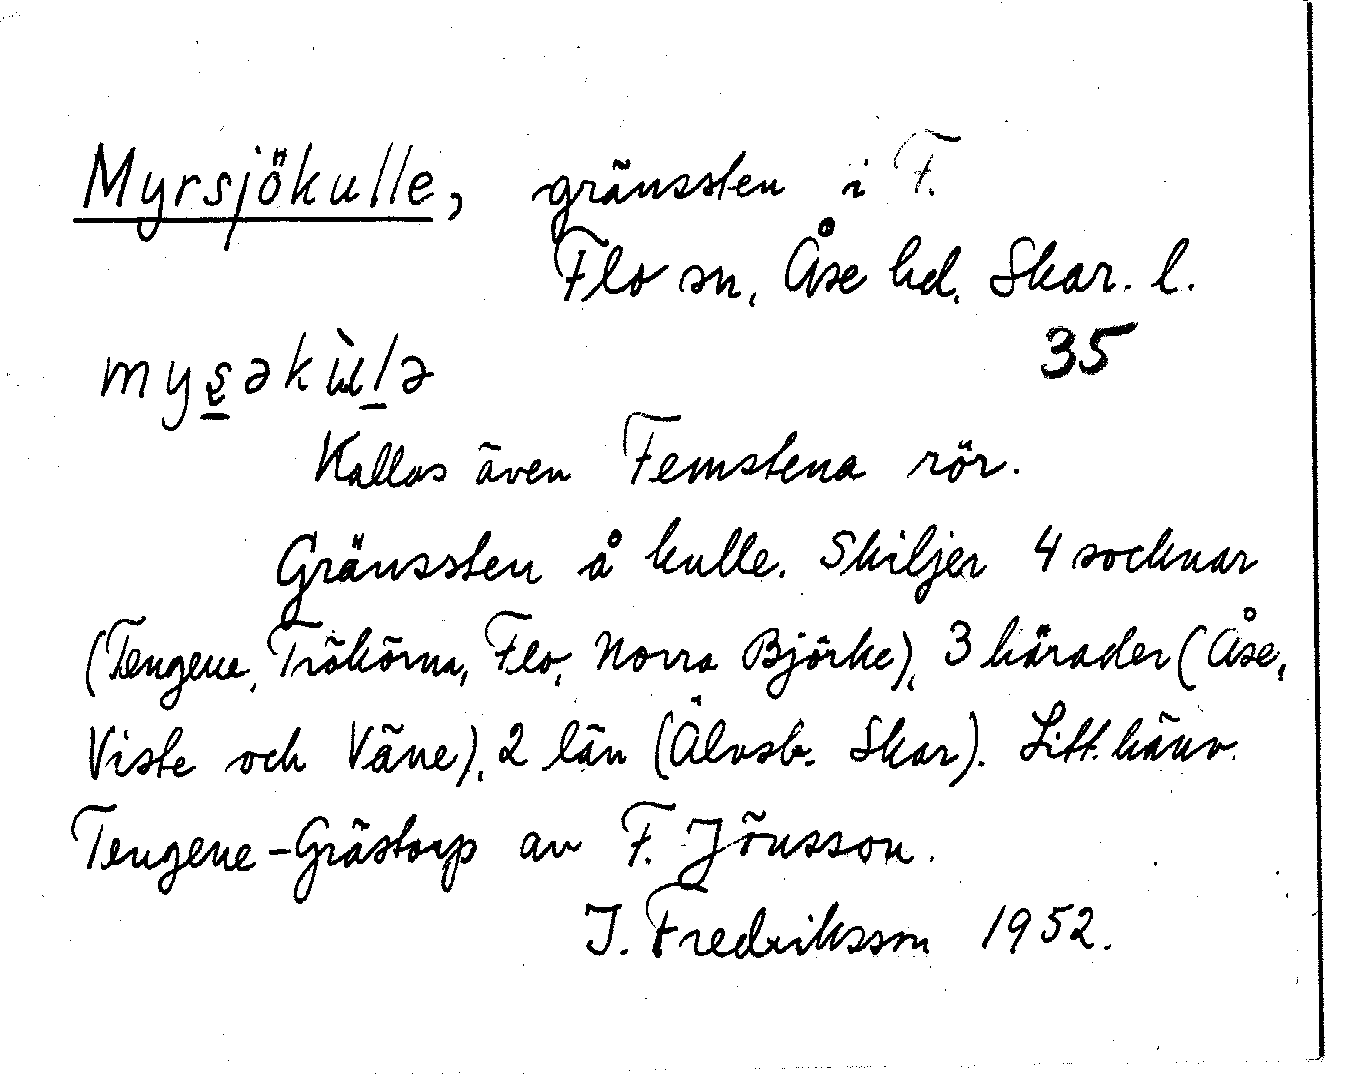 Myrsjökulle, gränssten i F.
Flo sn, Åse hd, Skar. l.
35
mys̱əkùḻə
Kallas även Femstena rör.
Gränssten å kulle. Skiljer 4 socknar
(Tengene, Trökörna, Flo, Norra Björke), 3 härader (Åse,
Viste och Väne), 2 län (Älvsb. Skar). Litt. hänv.
Tengene-Grästorp av F. Jönsson.
J. Fredriksson 1952.